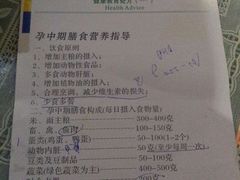 健康教育处方
Health Advice
孕中期膳食营养指导
一、饮食原则
1、增加主粮的摄入;
2、增加动物性食品;
3、多食动物肝脏;
4、增加植物油的摄入;
5、合理烹调,减少维生素的损失;
6、少食多餐
孕中期膳食构成(每日摄入食物量)
米、面主粮 300-400克
畜、禽、鱼肉 100-150克
蛋类(鸡蛋、鸭蛋) 50-100(1-2个)
动物内脏 50克(至少每周一次)
豆类及豆制品 50-100克
蔬菜(绿色蔬菜为主) 500克